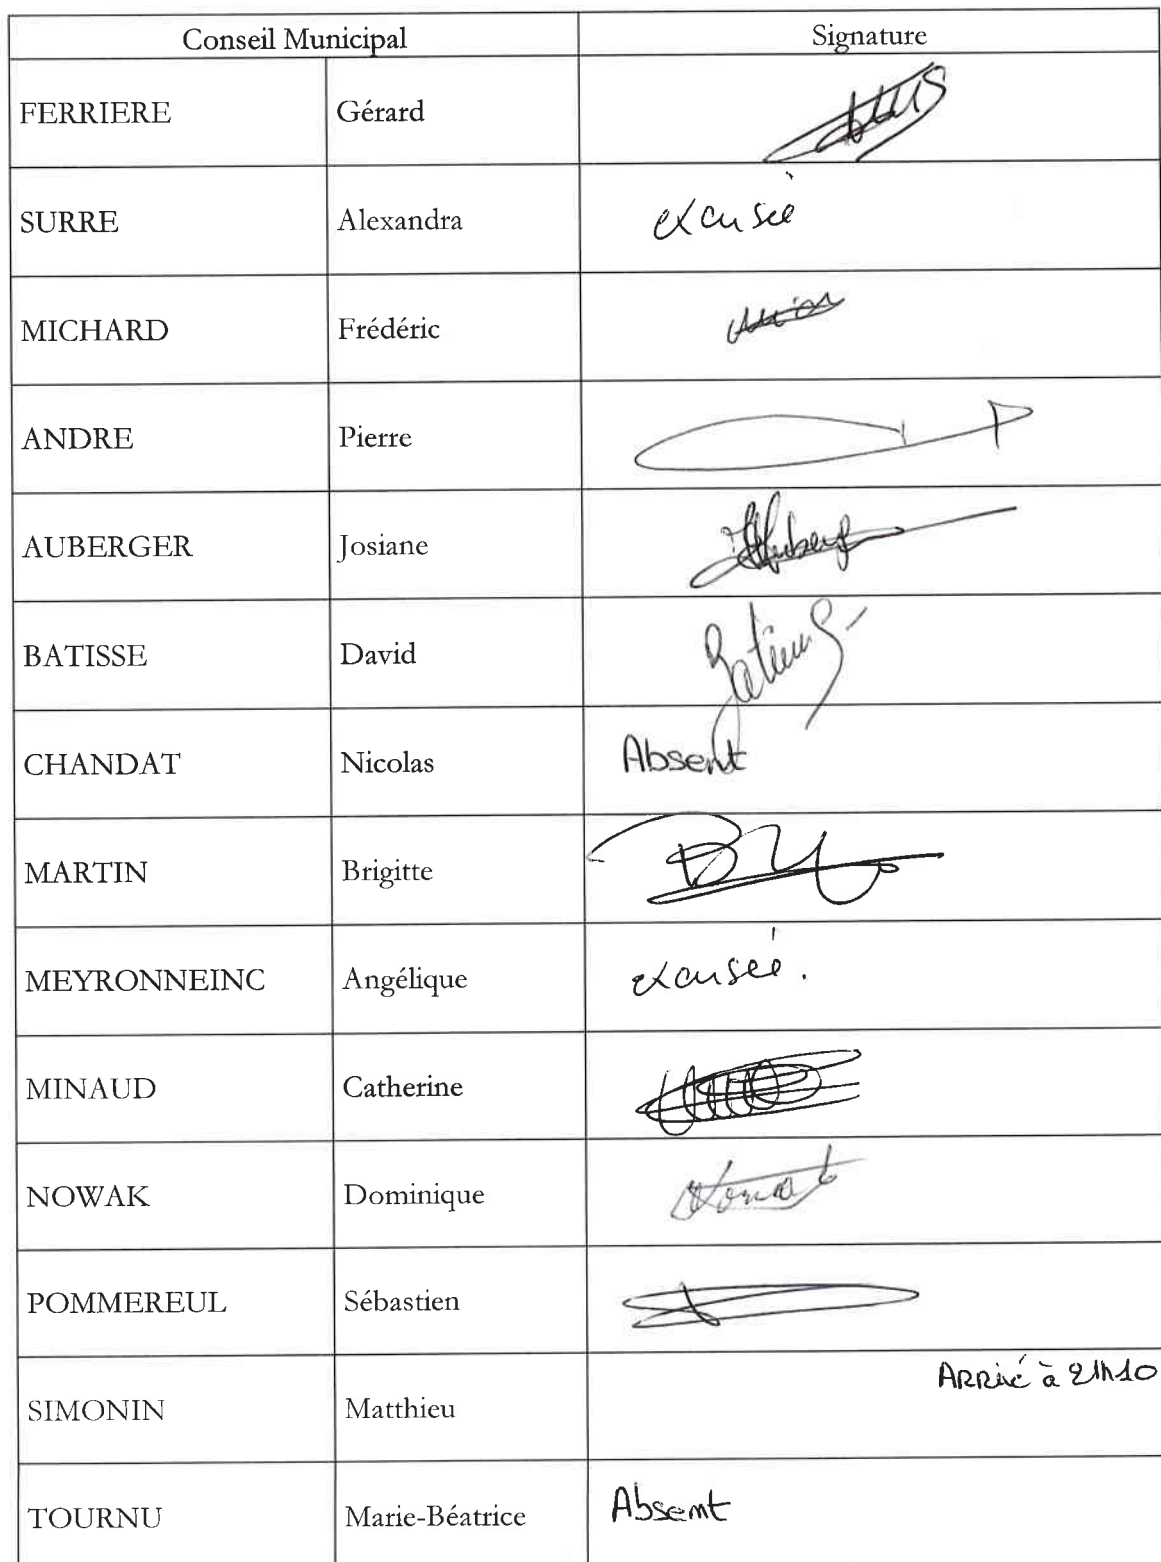 Conseil Municipal Signature
FERRIERE Gérard
SURRE Alexandra excusée
MICHARD Frédéric
ANDRE Pierre
AUBERGER Josiane
BATISSE David
CHANDAT Nicolas Absent
MARTIN Brigitte
MEYRONNEINC Angélique excusée.
MINAUD Catherine
NOWAK Dominique
POMMEREUL Sébastien
SIMONIN Matthieu ARRivé à 21h10
TOURNU Marie-Béatrice Absent